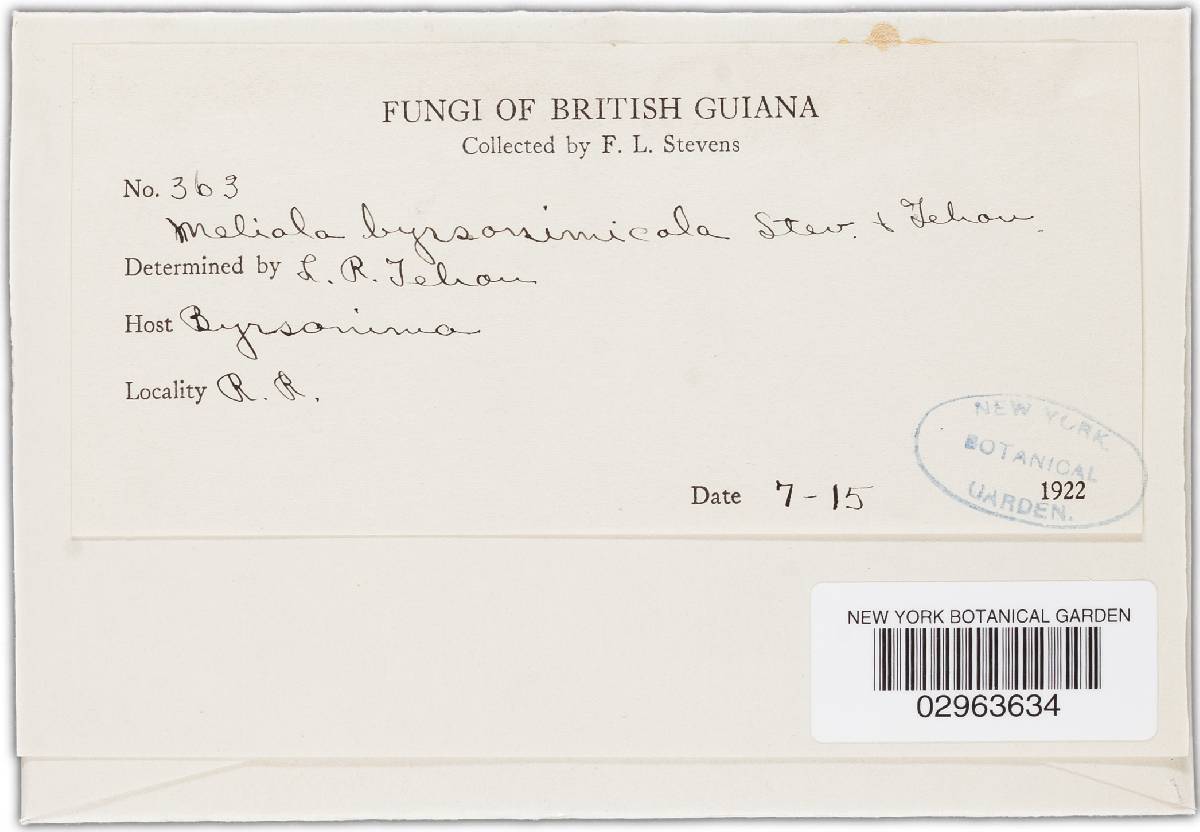 FUNGI OF BRITISH GUIANA
Collected by F. L. Stevens
No. 363
Meliola byrsonimicola Stev. & Tehon.
Determined by L. R. Tehon
Host Byrsonima
Locality R. R.
Date 7-15 1922
NEW YORK
BOTANICAL
GARDEN.
NEW YORK BOTANICAL GARDEN
02963634